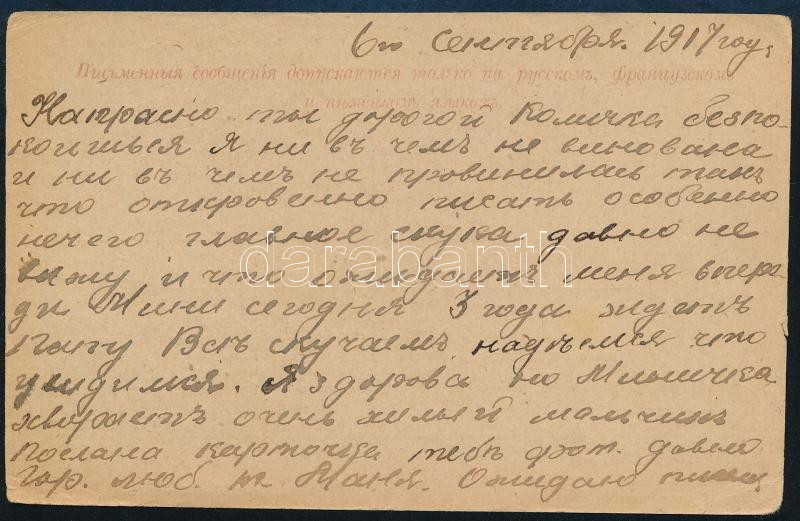 6го Сентября. 1917 году,
Письменныя сообщенія допускаются только на русскомъ, французскомъ
и нѣмецкомъ языкахъ.
Напрасно ты дорогой Количка безпо-
коишься я ни въ чемъ не винована
и ни въ чемъ не провинилась такъ
что откровенно писать особенно
нечего главное скука давно не
вижу и что ожидаетъ меня впере-
ди. сегодня 3 года ждетъ
папу Всѣ скучаемъ надѣемся что
увидимся. Я здорова но
хвораетъ очень хилый мальчикъ
послана карточка тебѣ фот. давно
Гор. люб. т. Маня. Ожидаю
darabanth